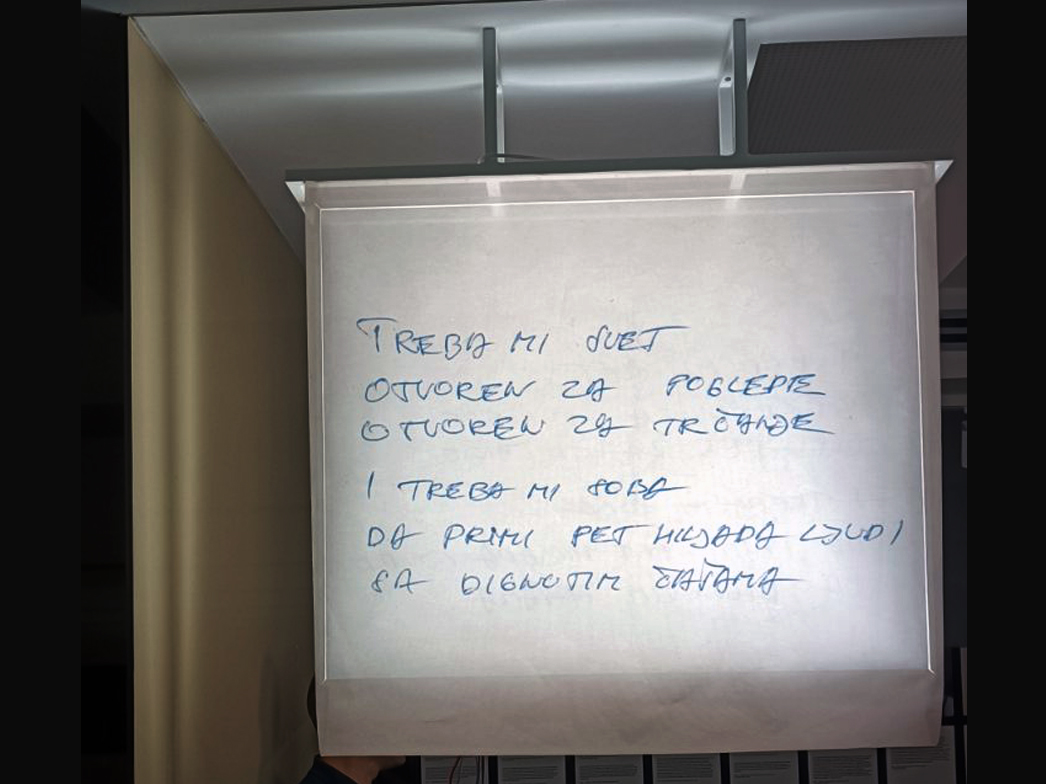 TREBA MI SVET
OTVOREN ZA POGLEDE
OTVOREN ZA TRČANJE
I TREBA MI SOBA
DA PRIMI PET HILJADA LJUDI
SA DIGNUTIM ČAŠAMA